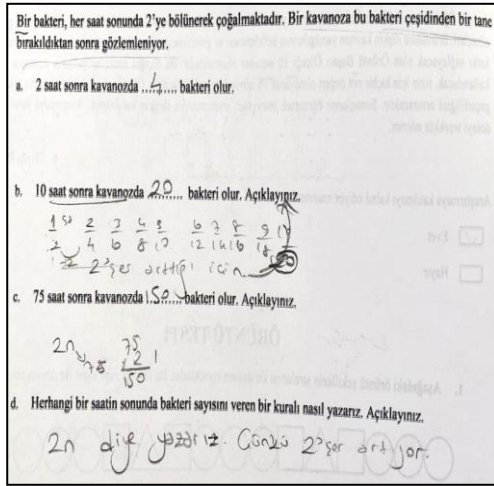 Bir bakteri, her saat sonunda 2'ye bölünerek çoğalmaktadır. Bir kavanoza bu bakteri çeşidinden bir tane
bırakıldıktan sonra gözlemleniyor.
a. 2 saat sonra kavanozda ...4...... bakteri olur.
b. 10 saat sonra kavanozda 20...... bakteri olur. Açıklayınız.
1 2 3 4 5 6 7 8 9 10
2 4 6 8 10 12 14 16 18 20
2'şer arttığı için
c. 75 saat sonra kavanozda 150 bakteri olur. Açıklayınız.
2n 75
75 2
150
d. Herhangi bir saatin sonunda bakteri sayısını veren bir kuralı nasıl yazarız. Açıklayınız.
2n diye yazarız. Çünkü 2'şer artıyor.